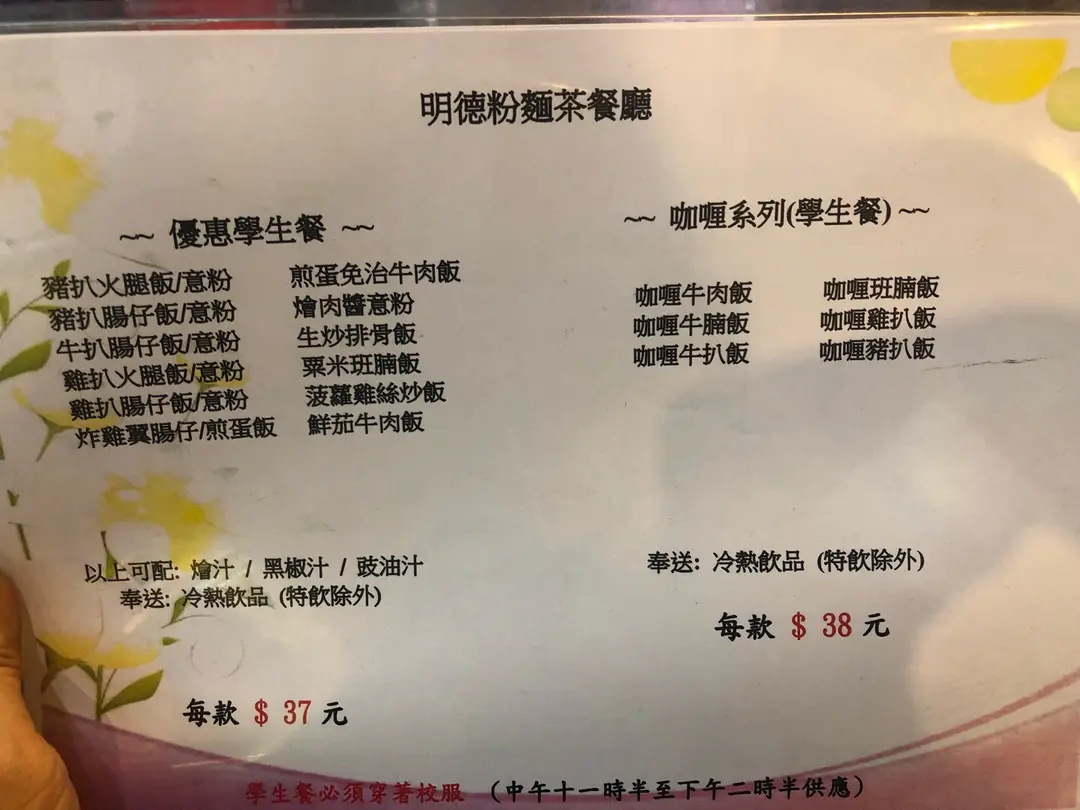 明德粉麵茶餐廳
~~ 優惠學生餐 ~~
豬扒火腿飯/意粉
豬扒腸仔飯/意粉
牛扒腸仔飯/意粉
雞扒火腿飯/意粉
雞扒腸仔飯/意粉
炸雞翼腸仔/煎蛋飯
煎蛋免治牛肉飯
燴肉醬意粉
生炒排骨飯
粟米班腩飯
菠蘿雞絲炒飯
鮮茄牛肉飯
以上可配: 燴汁 / 黑椒汁 / 豉油汁
奉送: 冷熱飲品 (特飲除外)
每款 $ 37 元
~~ 咖喱系列(學生餐) ~~
咖喱牛肉飯
咖喱牛腩飯
咖喱牛扒飯
咖喱班腩飯
咖喱雞扒飯
咖喱豬扒飯
奉送: 冷熱飲品 (特飲除外)
每款 $ 38 元
學生餐必須穿著校服 (中午十一時半至下午二時半供應)